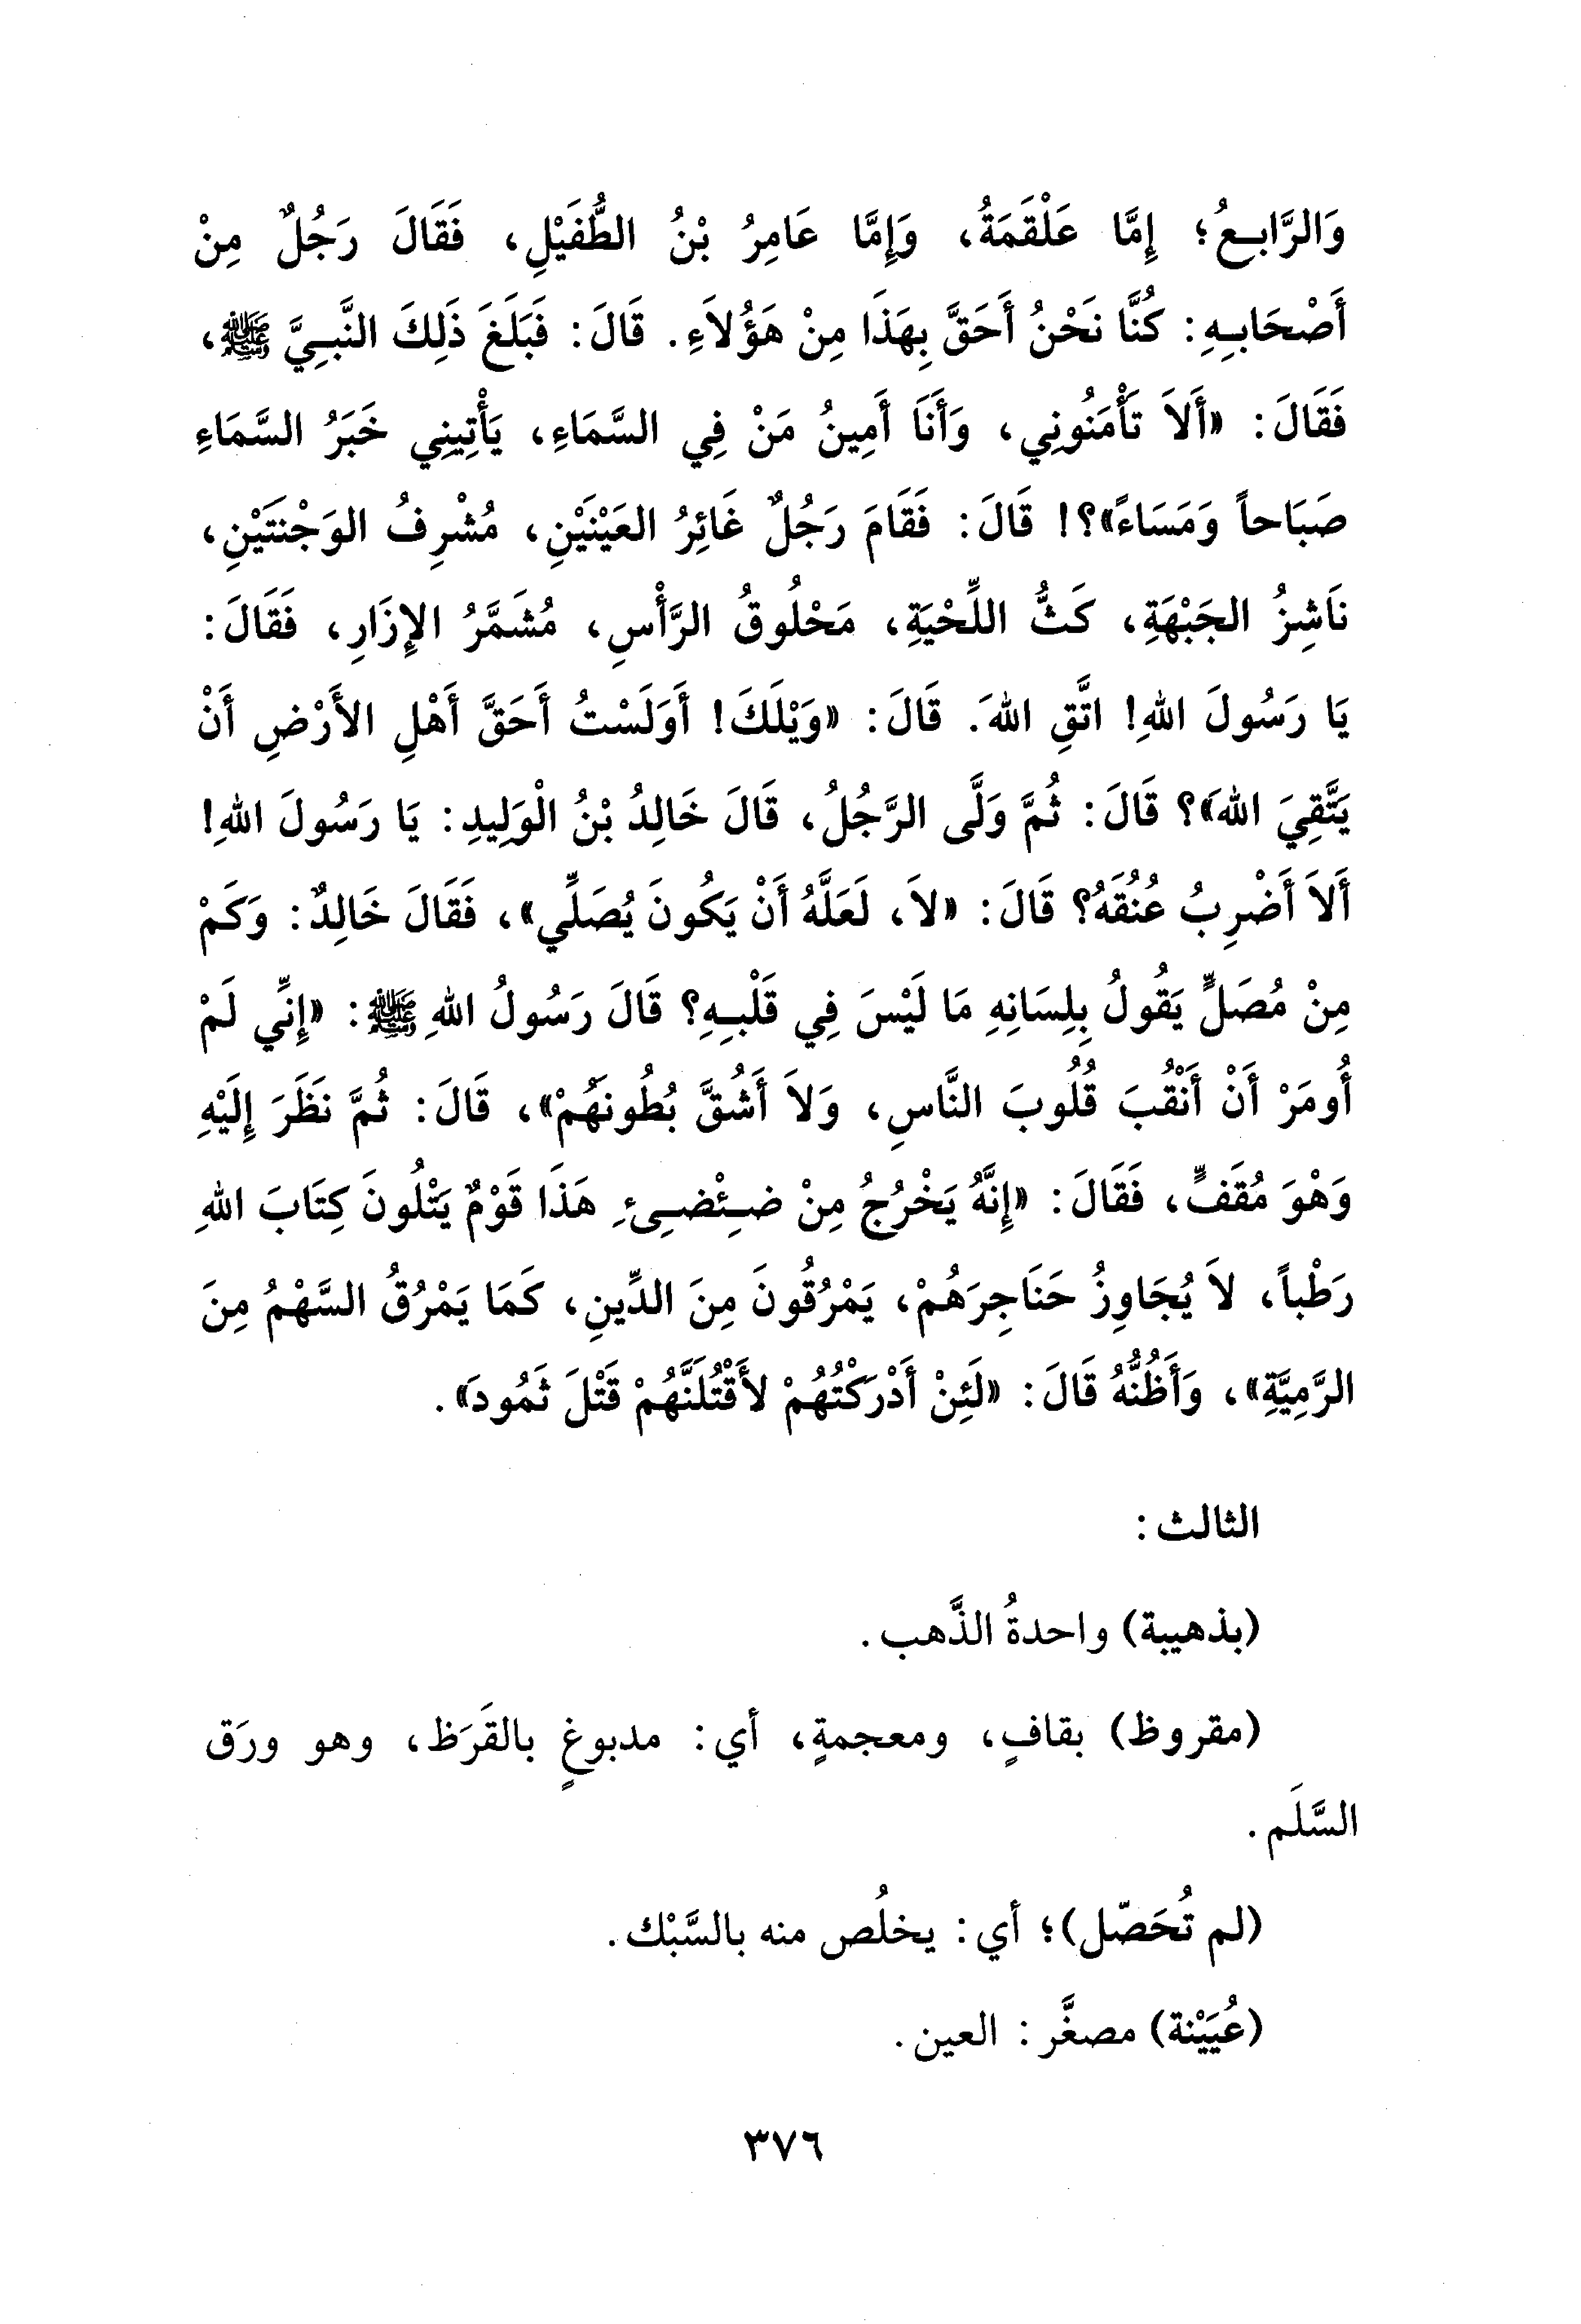 وَالرَّابِعُ؛ إِمَّا عَلْقَمَةُ، وَإِمَّا عَامِرُ بْنُ الطُّفَيْلِ، فَقَالَ رَجُلٌ مِنْ
أَصْحَابِهِ: كُنَّا نَحْنُ أَحَقَّ بِهَذَا مِنْ هَؤُلاَءِ. قَالَ: فَبَلَغَ ذَلِكَ النَّبِيَّ ﷺ،
فَقَالَ: «أَلاَ تَأْمَنُونِي، وَأَنَا أَمِينُ مَنْ فِي السَّمَاءِ، يَأْتِينِي خَبَرُ السَّمَاءِ
صَبَاحاً وَمَسَاءً»؟! قَالَ: فَقَامَ رَجُلٌ غَائِرُ العَيْنَيْنِ، مُشْرِفُ الوَجْنتَيْنِ،
نَاشِزُ الجَبْهَةِ، كَثُّ اللِّحْيَةِ، مَحْلُوقُ الرَّأْسِ، مُشَمَّرُ الإِزَارِ، فَقَالَ:
يَا رَسُولَ اللهِ! اتَّقِ اللهَ. قَالَ: «وَيْلَكَ! أَوَلَسْتُ أَحَقَّ أَهْلِ الأَرْضِ أَنْ
يَتَّقِيَ اللهَ»؟ قَالَ: ثُمَّ وَلَّى الرَّجُلُ، قَالَ خَالِدُ بْنُ الْوَلِيدِ: يَا رَسُولَ اللهِ!
أَلاَ أَضْرِبُ عُنُقَهُ؟ قَالَ: «لاَ، لَعَلَّهُ أَنْ يَكُونَ يُصَلِّي»، فَقَالَ خَالِدٌ: وَكَمْ
مِنْ مُصَلٍّ يَقُولُ بِلِسَانِهِ مَا لَيْسَ فِي قَلْبِهِ؟ قَالَ رَسُولُ اللهِ ﷺ: «إِنِّي لَمْ
أُومَرْ أَنْ أَنْقُبَ قُلُوبَ النَّاسِ، وَلاَ أَشُقَّ بُطُونَهُمْ»، قَالَ: ثُمَّ نَظَرَ إِلَيْهِ
وَهْوَ مُقَفٍّ، فَقَالَ: «إِنَّهُ يَخْرُجُ مِنْ ضِئْضِىءِ هَذَا قَوْمٌ يَتْلُونَ كِتَابَ اللهِ
رَطْباً، لاَ يُجَاوِزُ حَنَاجِرَهُمْ، يَمْرُقُونَ مِنَ الدِّينِ، كَمَا يَمْرُقُ السَّهْمُ مِنَ
الرَّمِيَّةِ»، وَأَظُنُّهُ قَالَ: «لَئِنْ أَدْرَكْتُهُمْ لأَقْتُلَنَّهُمْ قَتْلَ ثَمُودَ».
الثالث:
(بذهيبة) واحدةُ الذَّهب.
(مقروظ) بقافٍ، ومعجمةٍ، أي: مدبوغٍ بالقَرَظ، وهو ورَق
السَّلَم.
(لم تُحَصّل)؛ أي: يخلُص منه بالسَّبْك.
(عُيَيْنة) مصغَّر: العين.
٣٧٦